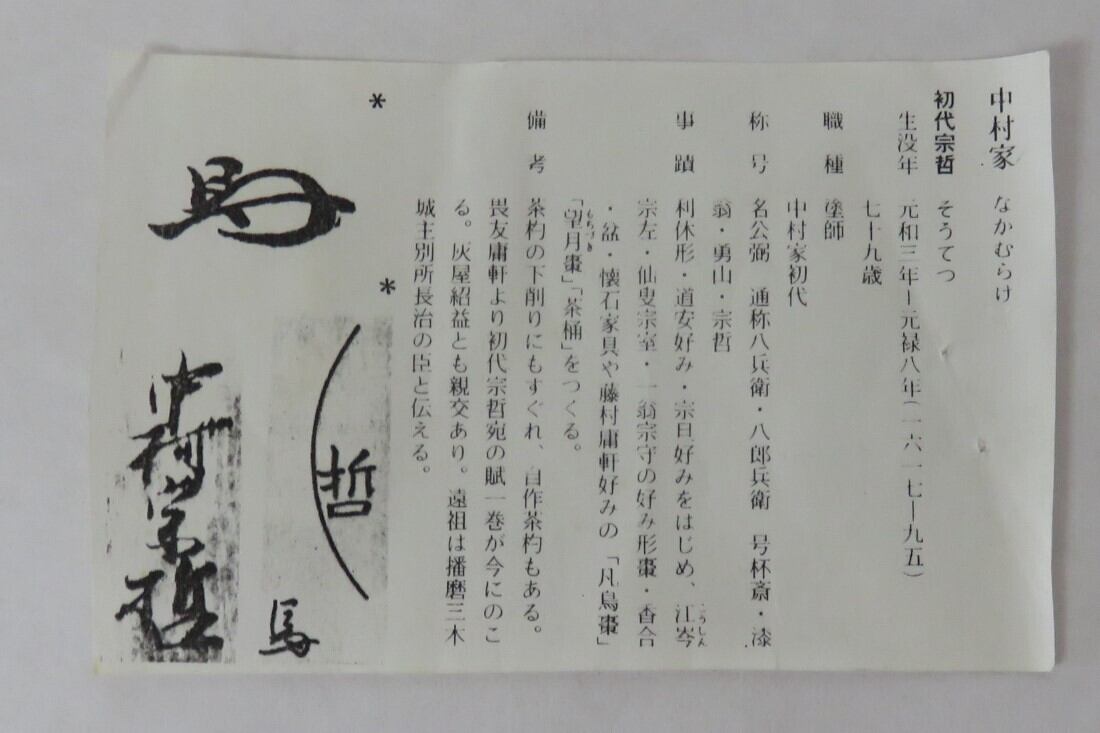 中村家 なかむらけ
初代宗哲 そうてつ
生没年 元和三年―元禄八年(一六一七―九五)
七十九歳
職種 塗師
中村家初代
称号 名公弼 通称八兵衛・八郎兵衛 号杯斎・漆
翁・勇山・宗哲
事蹟 利休形・道安好み・宗旦好みをはじめ、江岑
こうしん
宗左・仙叟宗室・一翁宗守の好み形棗・香合
・盆・懐石家具や藤村庸軒好みの「凡鳥棗」
「望月棗」「茶桶」をつくる。
もちづき
備考 茶杓の下削りにもすぐれ、自作茶杓もある。
畏友庸軒より初代宗哲宛の賦一巻が今にのこ
る。灰屋紹益とも親交あり。遠祖は播磨三木
城主別所長治の臣と伝える。
*
*
哲
中村宗哲